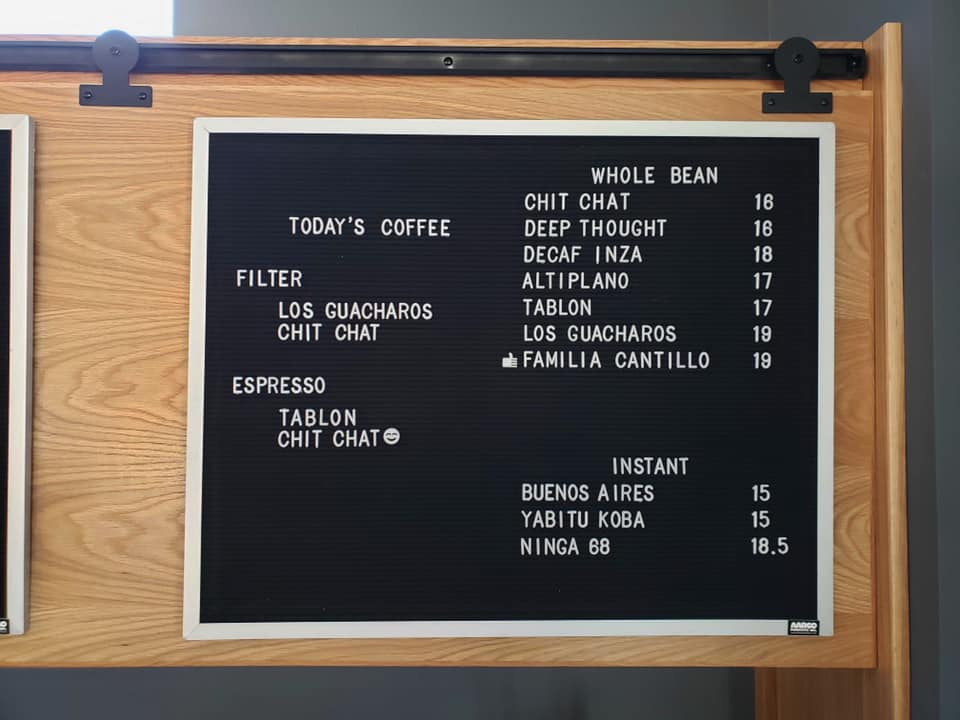 TODAY'S COFFEE
FILTER
LOS GUACHAROS
CHIT CHAT
ESPRESSO
TABLON
CHIT CHAT😊
WHOLE BEAN
CHIT CHAT 16
DEEP THOUGHT 16
DECAF INZA 18
ALTIPLANO 17
TABLON 17
LOS GUACHAROS 19
👍FAMILIA CANTILLO 19
INSTANT
BUENOS AIRES 15
YABITU KOBA 15
NINGA 68 18.5
AARCO